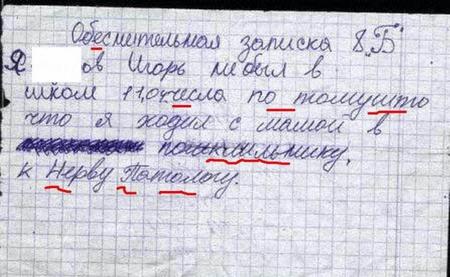 Обеснительная записка 8 „Б"
Я ов Игорь небыл в
школ 11,04 числа по томушто
что я ходил с мамой в
к Нерву Патологу.